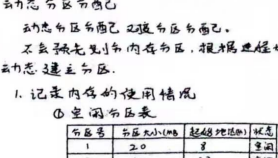 动态分区分配
动态分区分配 又称分区分配。
不会预先划分内存分区,根据进程
动态建立分区.
1. 记录内存的使用情况
① 空闲分区表
分区号 分区大小(MB 起始地址(M) 状态
1 20 8 空闲